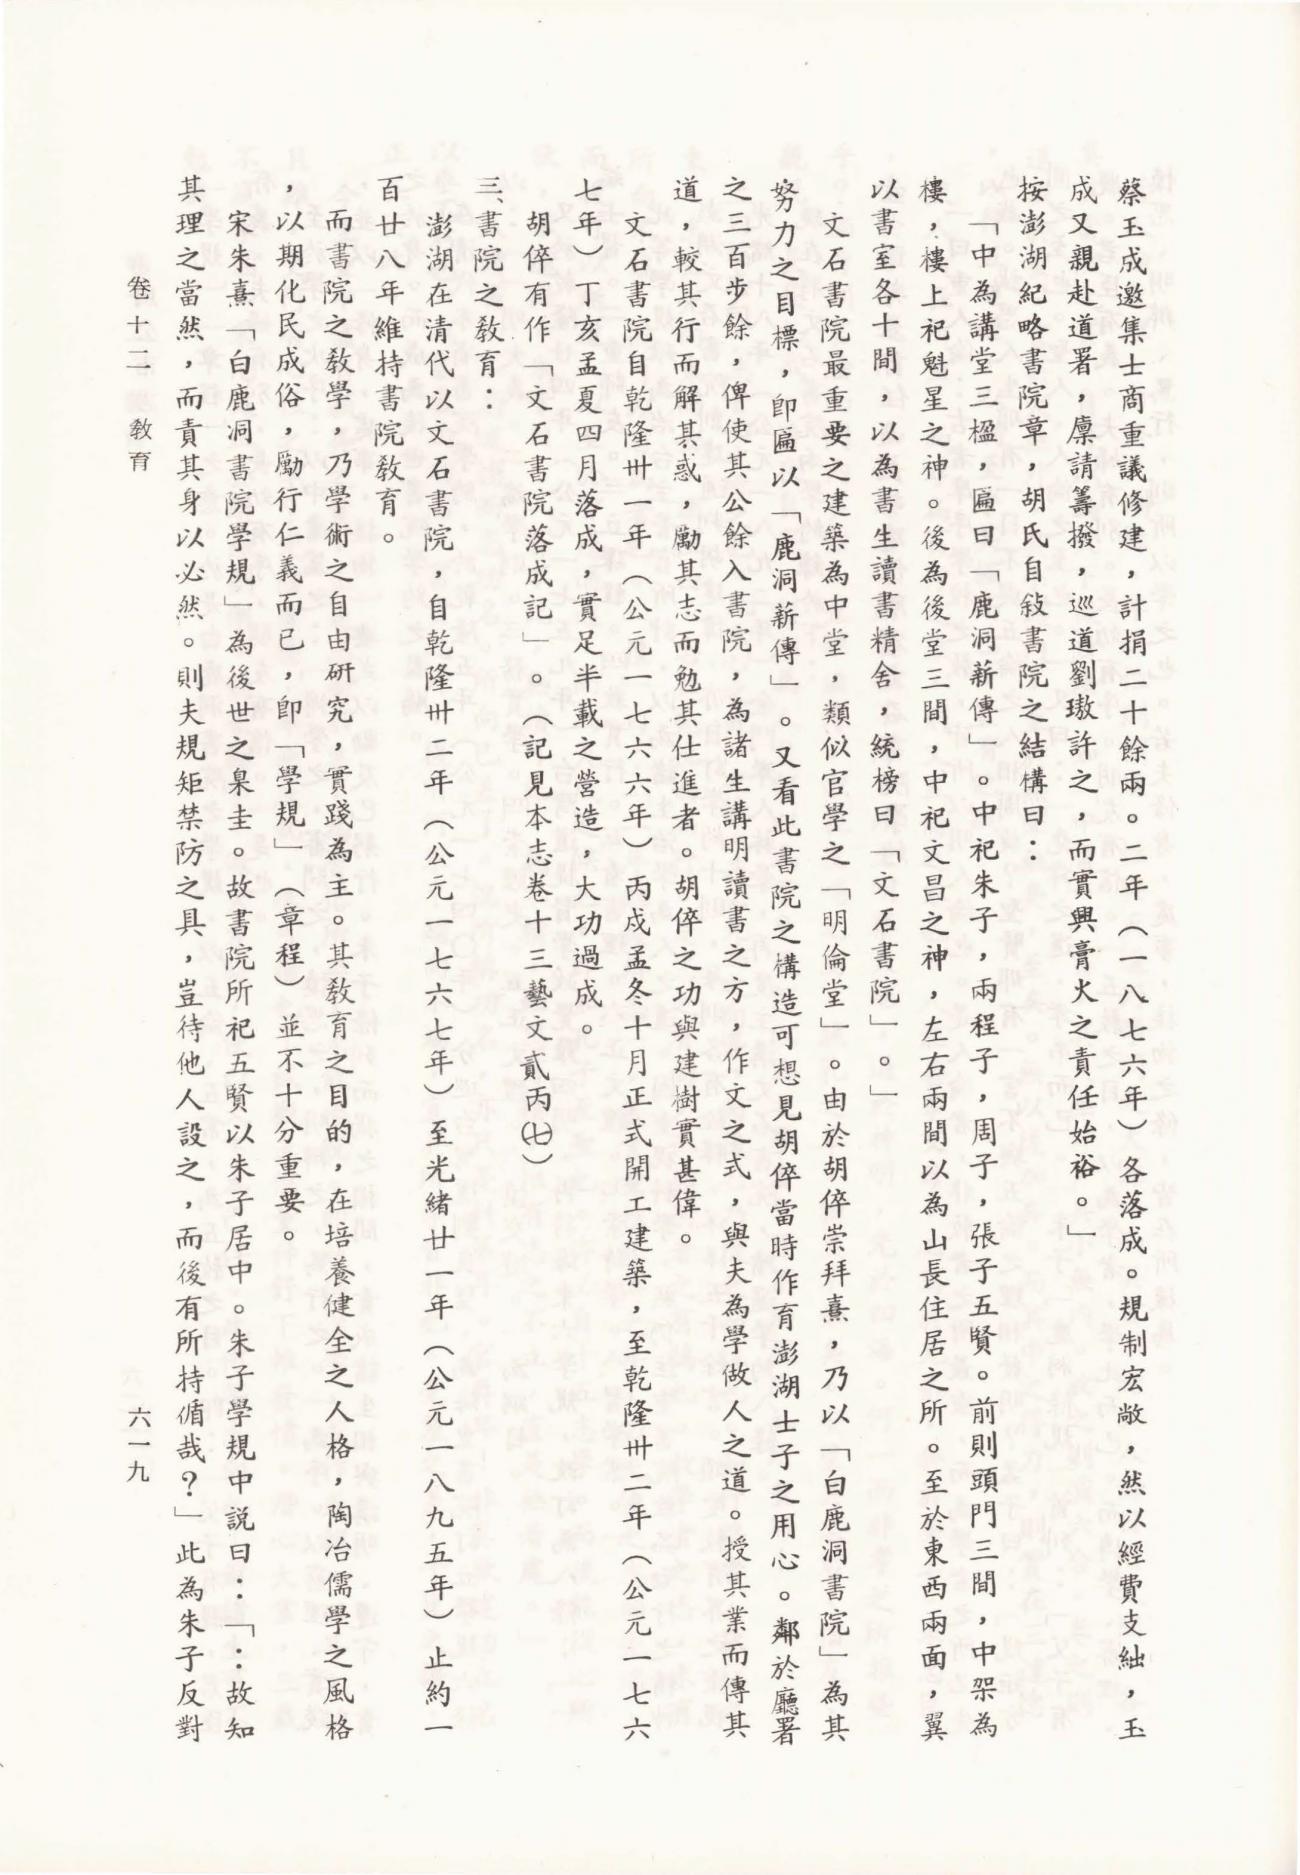 蔡玉成邀集士商重議修建，計捐二十餘兩。二年（一八七六年）各落成。規制宏敞，然以經費支絀，玉
成又親赴道署，稟請籌撥，巡道劉璈許之，而實興膏火之責任始裕。」
按澎湖紀略書院章，胡氏自敍書院之結構曰：
「中為講堂三楹，匾曰「鹿洞薪傳」。中祀朱子，兩程子，周子，張子五賢。前則頭門三間，中架為
樓，樓上祀魁星之神。後為後堂三間，中祀文昌之神，左右兩間以為山長住居之所。至於東西兩面，翼
以書室各十間，以為書生讀書精舍，統榜曰「文石書院」。」
文石書院最重要之建築為中堂，類似官學之「明倫堂」。由於胡倅崇拜熹，乃以「白鹿洞書院」為其
努力之目標，即匾以「鹿洞薪傳」。又看此書院之構造可想見胡倅當時作育澎湖士子之用心。鄰於廳署
之三百步餘，俾使其公餘入書院，為諸生講明讀書之方，作文之式，與夫為學做人之道。授其業而傳其
道，較其行而解其惑，勵其志而勉其仕進者。胡倅之功與建樹實甚偉。
文石書院自乾隆卅一年（公元一七六六年）丙戍孟冬十月正式開工建築，至乾隆卅二年（公元一七六
七年）丁亥孟夏四月落成，實足半載之營造，大功過成。
胡倅有作「文石書院落成記」。（記見本志卷十三藝文貳丙㈦）
三、書院之敎育：
澎湖在清代以文石書院，自乾隆卅二年（公元一七六七年）至光緒廿一年（公元一八九五年）止約一
百廿八年維持書院敎育。
而書院之敎學，乃學術之自由研究，實踐為主。其敎育之目的，在培養健全之人格，陶冶儒學之風格
，以期化民成俗，勵行仁義而已，即「學規」（章程）並不十分重要。
宋朱熹「白鹿洞書院學規」為後世之臬圭。故書院所祀五賢以朱子居中。朱子學規中説曰：「：故知
其理之當然，而責其身以必然。則夫規矩禁防之具，豈待他人設之，而後有所持循哉？」此為朱子反對
卷十二 敎育
六一九